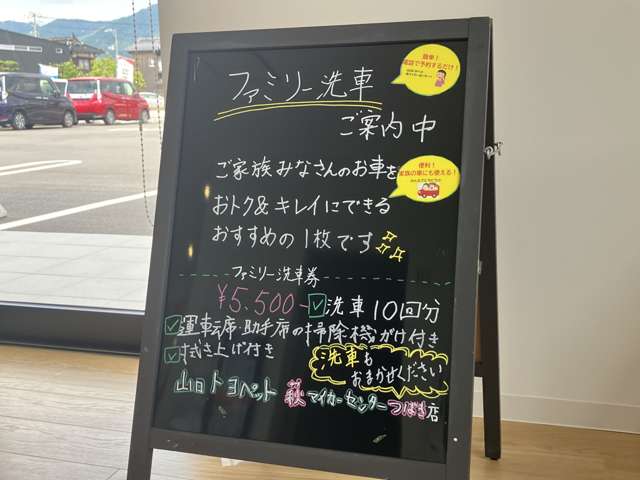 ファミリー洗車
ご案内中
簡単！
電話で予約するだけ！
ご家族みなさんのお車を
便利！
家族の車にも使える！
おトク&キレイにできる
おすすめの1枚です
ファミリー洗車券
¥5,500-
洗車10回分
運転席・助手席の掃除機がけ付き
拭き上げ付き
洗車も
おまかせください
山口トヨペット 萩マイカーセンターつばき店